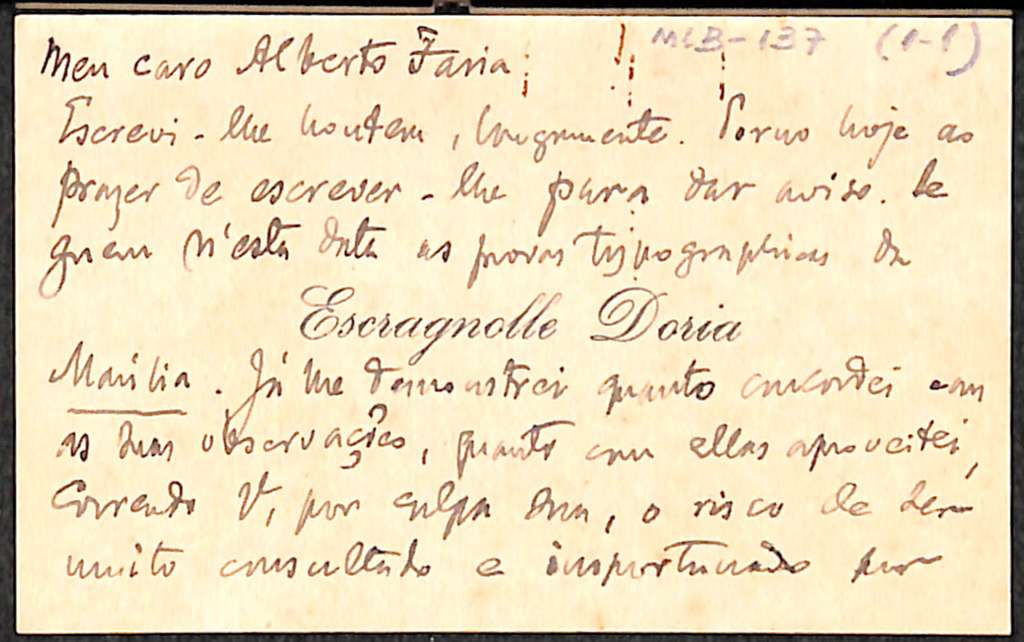 MLB-137 (1-1)
Meu caro Alberto Faria,
Escrevi-lhe hontem, longamente. Torno hoje ao
prazer de escrever-lhe para dar aviso. Se
guem n'esta data as provas typographicas da
Escragnolle Doria
Marilia. Já lhe demonstrei quanto concordei com
as suas observações, quanto com ellas aproveitei,
Correndo V, por culpa sua, o risco de ser
muito consultado e importunado por